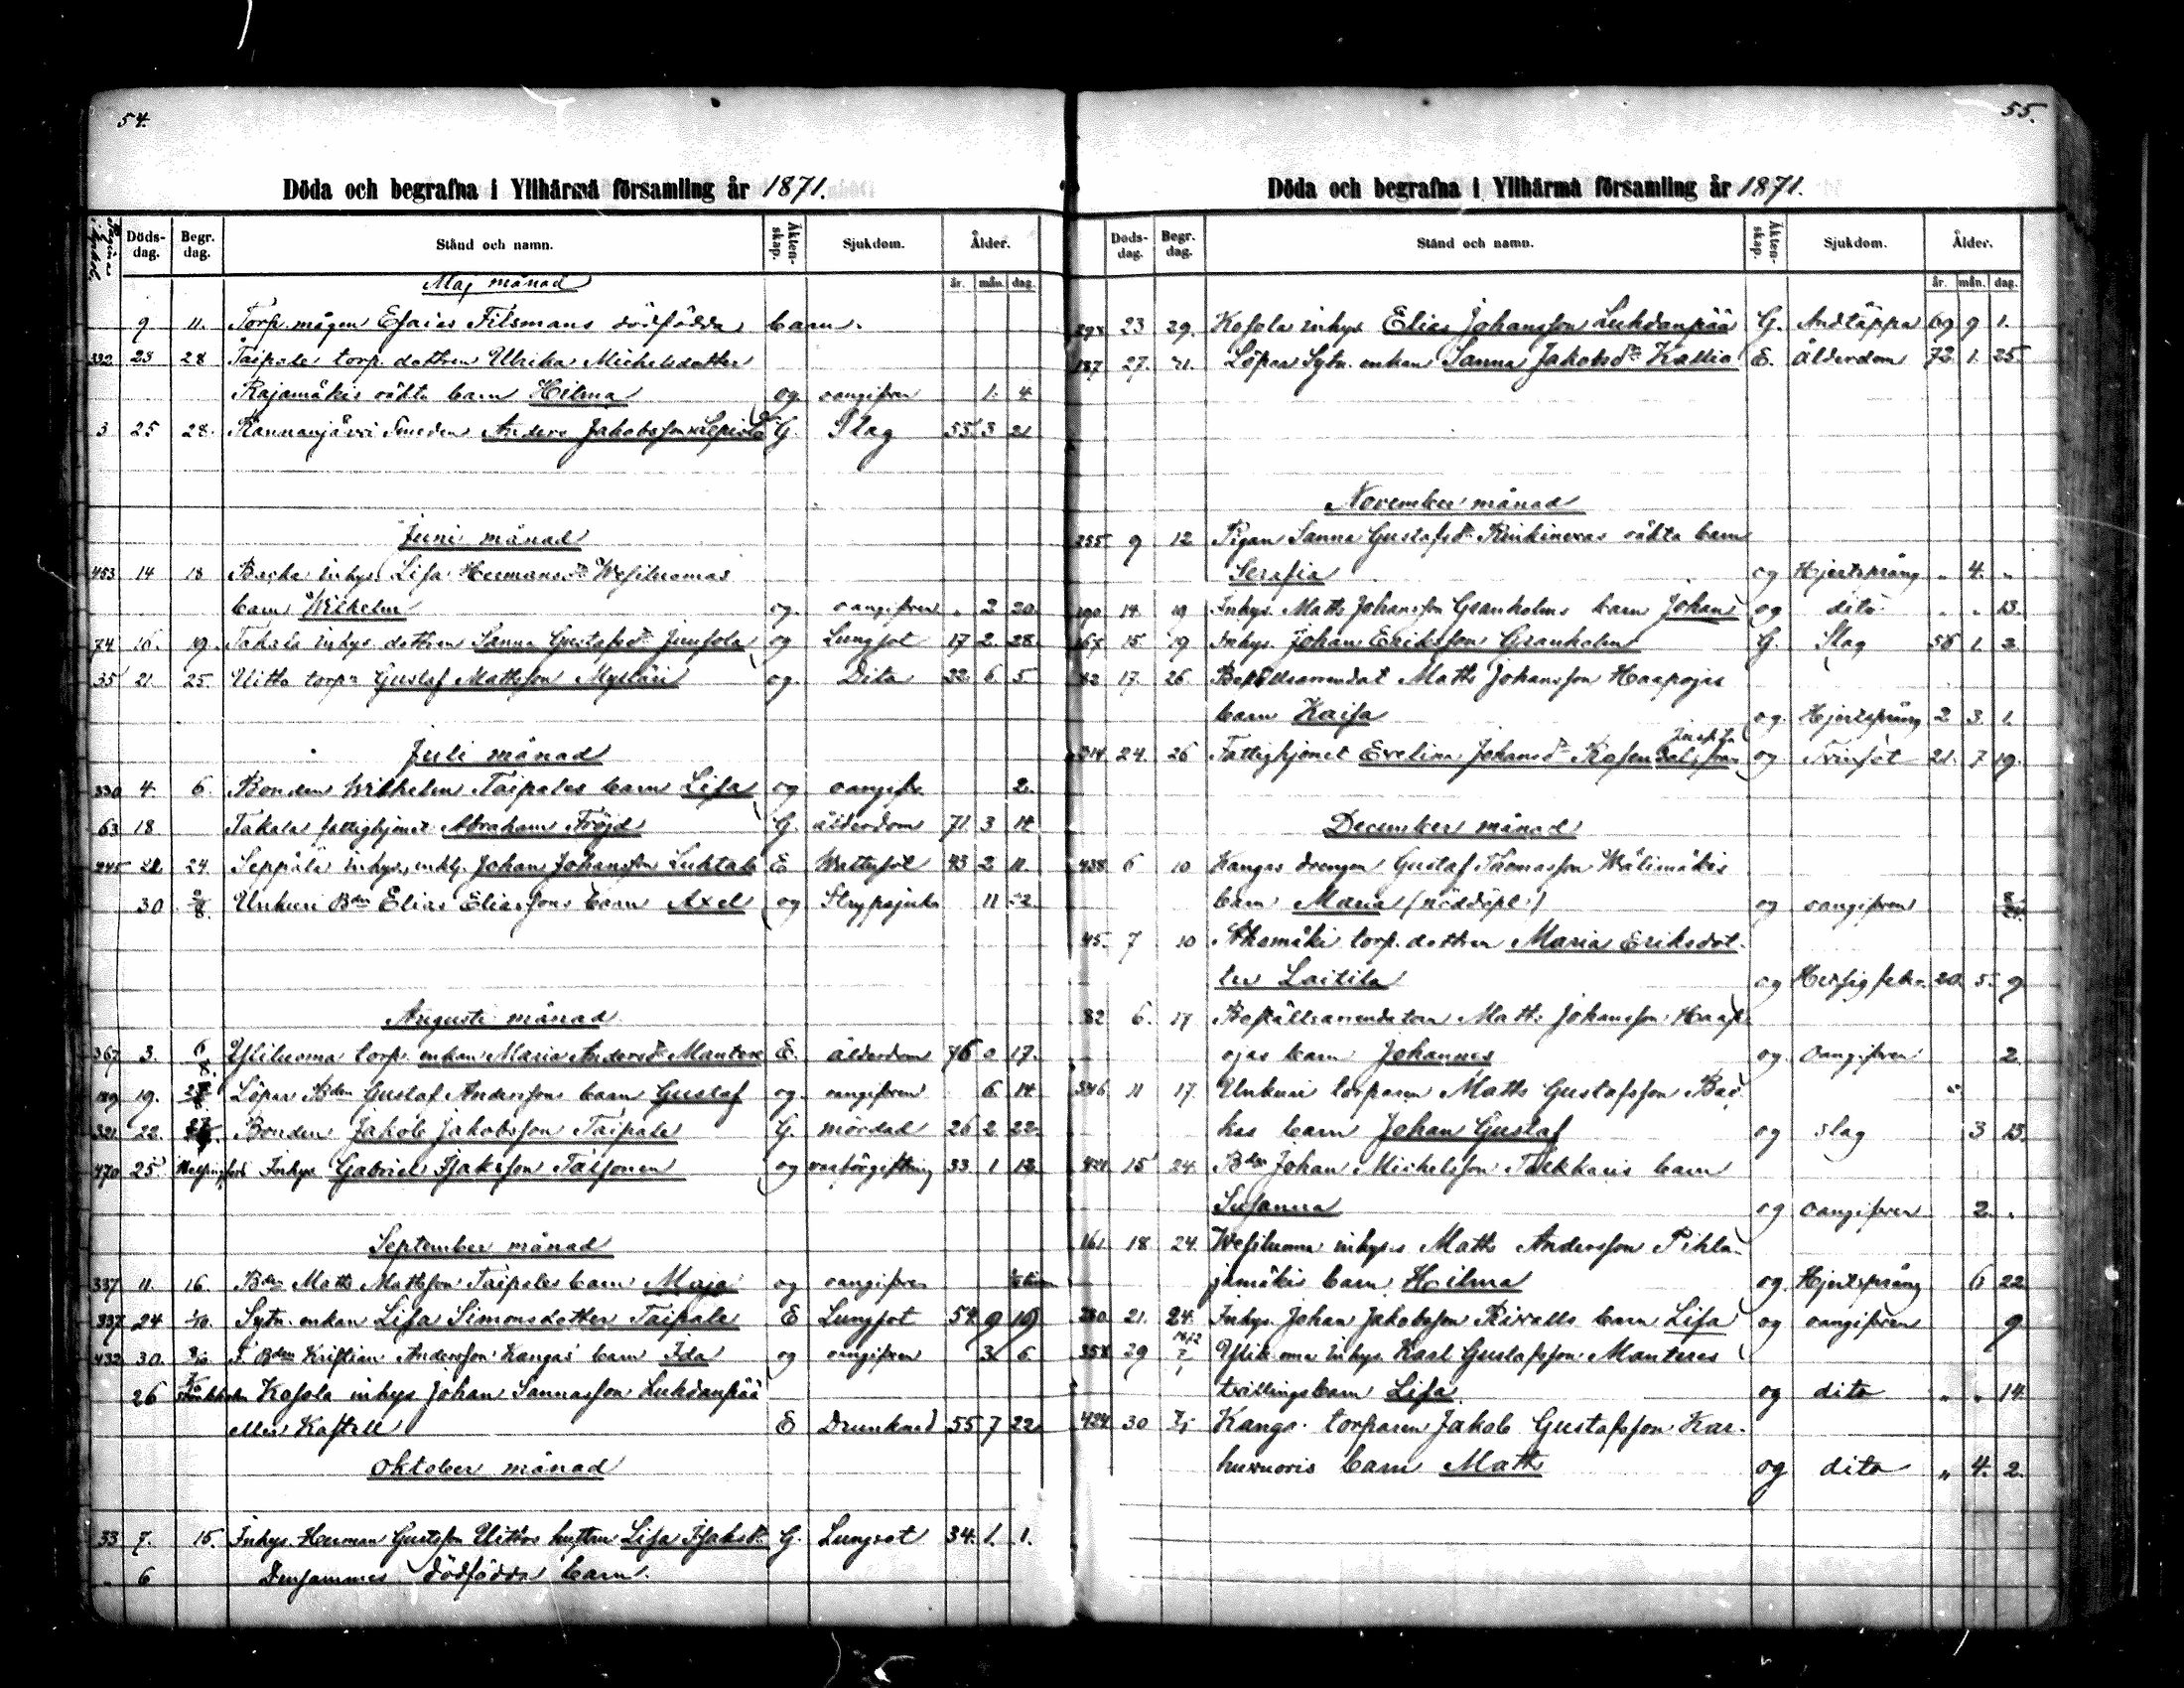 54.
Döda och begrafna i Ylihärmä församling år 1871.
Döds-dag. Begr. dag. Stånd och namn. Äkten-skap. Sjukdom. Ålder.
år. mån. dag.
Maj månad
9 11. Torp. mågen Esaias Filsmans dödfödda barn.
332 23 28 Taipale torp. dottren Ulrika Michelsdotter
Rajamäkis oäkta barn Hilma og oangifven 1. 4
3 25 28. Kannanjärvi Smeden Anders Jakobsson Lepistö G. Slag 55 3 21
Juni månad
453 14 18 Backa inhys. Lisa Hermansdr Wesiluomas
barn Wilhelm og. oangifven „ 2 20.
74 16. 19. Takala inhys. dottren Sanna Gustafsdr Junsola og Lungsot 17 2. 28.
35 21 25. Uitto torpr Gustaf Mattsson Mylläri og. Dito 32. 6. 5.
Juli månad
330 4. 6. Bonden Wilhelm Taipales barn Lisa og oangifv. 2.
63 18. Takala fattighjonet Abraham Fröjd G. ålderdom 71. 3 14
245 21. 24. Seppälä inhys. enkl. Johan Johansson Luhtala E Wattusot 43 2 11.
30. 2/8. Unkuri Bdn Elias Eliassons barn Axel og Strypsjuka 11 22.
Augusti månad
367 3. 6/8. Yliluoma torp. enkan Maria Andersdr Mantere E. ålderdom 76 0 17.
189 19. 27/8 Löpar Bdn Gustaf Anderssons barn Gustaf og. oangifven 6 14
321. 22. 27/8. Bonden Jakob Jakobsson Taipale G. mördad 26 2 22.
470 25. Helsingfors Inhys. Gabriel Isaksson Taiponen og 33. 1 13.
September månad
337 11. 16. Bdn Matts Mattsson Taipales barn Maja og oangifven
337 24 1/10. Sytn. enkan Lisa Simonsdotter Taipale E Lungsot 54. 9 19
432 30. 8/10. f. Bdn Kristian Andersson Kangas barn Ida og oangifven 3. 6.
26 Stockholm Kosola inhys Johan Sannasson Luhdanpää
eller Kastell E Drunknad 55 7 22.
Oktober månad
33 7. 15. Inhys. Herman Gustsson Uittos hustru Lisa Isaksdr. G. Lungsot 34. 1. 1.
„ 6 Densammes dödfödda barn.
55.
Döda och begrafna i Ylihärmä församling år 1871.
Döds-dag. Begr. dag. Stånd och namn. Äkten-skap. Sjukdom. Ålder.
år. mån. dag.
293 23 29. Kosola inhys. Elias Johansson Luhdanpää G. Andtäppa 69 9 1.
187 27. 31. Löpar Sytn. enkan Sanna Jakobsdr Kallio E. ålderdom 72. 1. 25.
November månad
255 9 12 Pigan Sanna Gustafsdr Rinkineras oäkta barn
Serafia og Hjertsprång „ 4. „
190 14. 19 Inhys. Matts Johansson Granholms barn Johan og dito „ „ 13.
165 15 19 Inhys. Johan Eriksson Granholm G. Slag 56 1. 3.
82 17. 26. Boställsarrendat Matts Johansson Haapojas
barn Kaisa og. Hjertsprång 2 3. 1.
314 24. 26 Fattighjonet Evelina Johansdr Rosendal og Tvinsot 21. 7 19.
December månad
438 6 10 Kangas drengen Gustaf Thomasson Wälimäkis
barn Maria (nöddöpt) og oangifven 8/24.
45. 7 10 Ahomäki torp. dottren Maria Eriksdot-
ter Laitila og Hetsig feber 20. 5. 9
82 6. 17 Boställsarrendatorn Matts Johansson Haap-
ojas barn Johannes og. oangifven 2.
346 11 17. Unkuri torparen Matts Gustafsson Bac-
kas barn Johan Gustaf og slag 3 13.
15 24. Bdn Johan Michelsson Takkaris barn
Susanna og oangifven 2. „
161. 18 24. Wesiluoma inhys:s Matts Andersson Pihla-
jamäkis barn Hilma og. Hjertsprång 6 22
280. 21. 24. Inhys. Johan Jakobsson Rivalls barn Lisa og oangifven 9
358 29 1872 Yliluoma inhys. Karl Gustafsson Manteres
tvillingsbarn Lisa og dito „ „ 14.
424 30 Kangas torparen Jakob Gustafsson Kar-
huvuoris barn Matts og dito „ 4. 2.